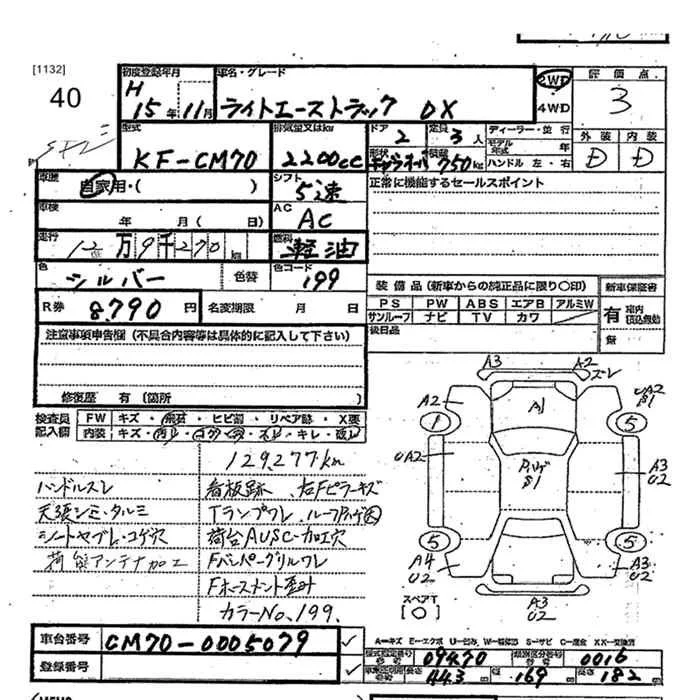 [1132]
40
初度登録年月
H 15年11月
車名・グレード
ライトエーストラック DX
2WD
4WD
評価点
3
型式
KF-CM70
排気量又はkw
2200cc
ドア 2
定員 3人
形状
積載 750kg
ディーラー・並行
モデル年式 年
ハンドル 左・右
外装 内装
D D
車歴
自家用・( )
シフト
5速
正常に機能するセールスポイント
車検
年 月( 日)
AC
AC
走行
12万9千270km
燃料
軽油
色
シルバー
色替
色コード
199
装備品(新車からの純正品に限り○印)
新車保証書
PS PW ABS エアB アルミW
サンルーフ ナビ TV カワ
有
無
後日品
R券 8,790円
名変期限 月 日
注意事項申告欄(不具合内容等は具体的に記入して下さい)
修復歴 有(箇所 )
検査員記入欄
FW キズ・飛石・ヒビ割・リペア跡・X要
内装
129277km
ハンドルスレ
看板跡 右Fピラーキズ
天張シミ・タルミ
シートヤブレ・コゲ穴
アンテナ加工
Fバンパーグリルワレ
カラーNo.199.
A3 A2 ズレ
A2 A1 UA2 S1
1 5
UA2 S1 A3 U2
5 5
A4 U2 A3 U2
A3 U2
スペアT
[○]
車台番号 CM70-0005079
登録番号
A=キズ E=エクボ U=凹み W=補修跡 S=サビ C=腐食 XX=交換済
型式指定番号 09470
類別区分番号 0016
長さ 443 cm 幅 169 cm 高さ 182 cm